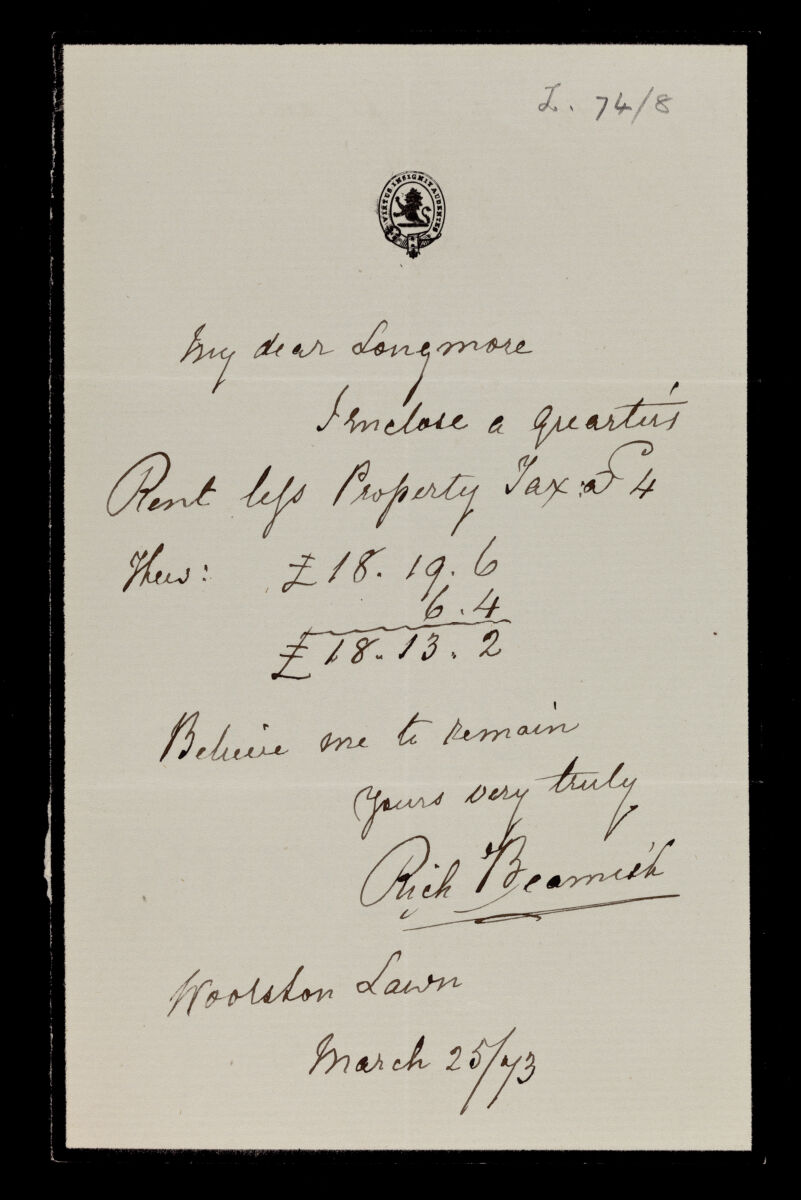 L. 74/8
VIRTUS INSIGNIT AUDENTES
My dear Longmore
I enclose a quarter's
Rent less Property Tax: @ 4
Thus: £18. 19. 6
6. 4
£18. 13. 2
Believe me to remain
Yours very truly
Rich Beamish
Woolston Lawn
March 25/73